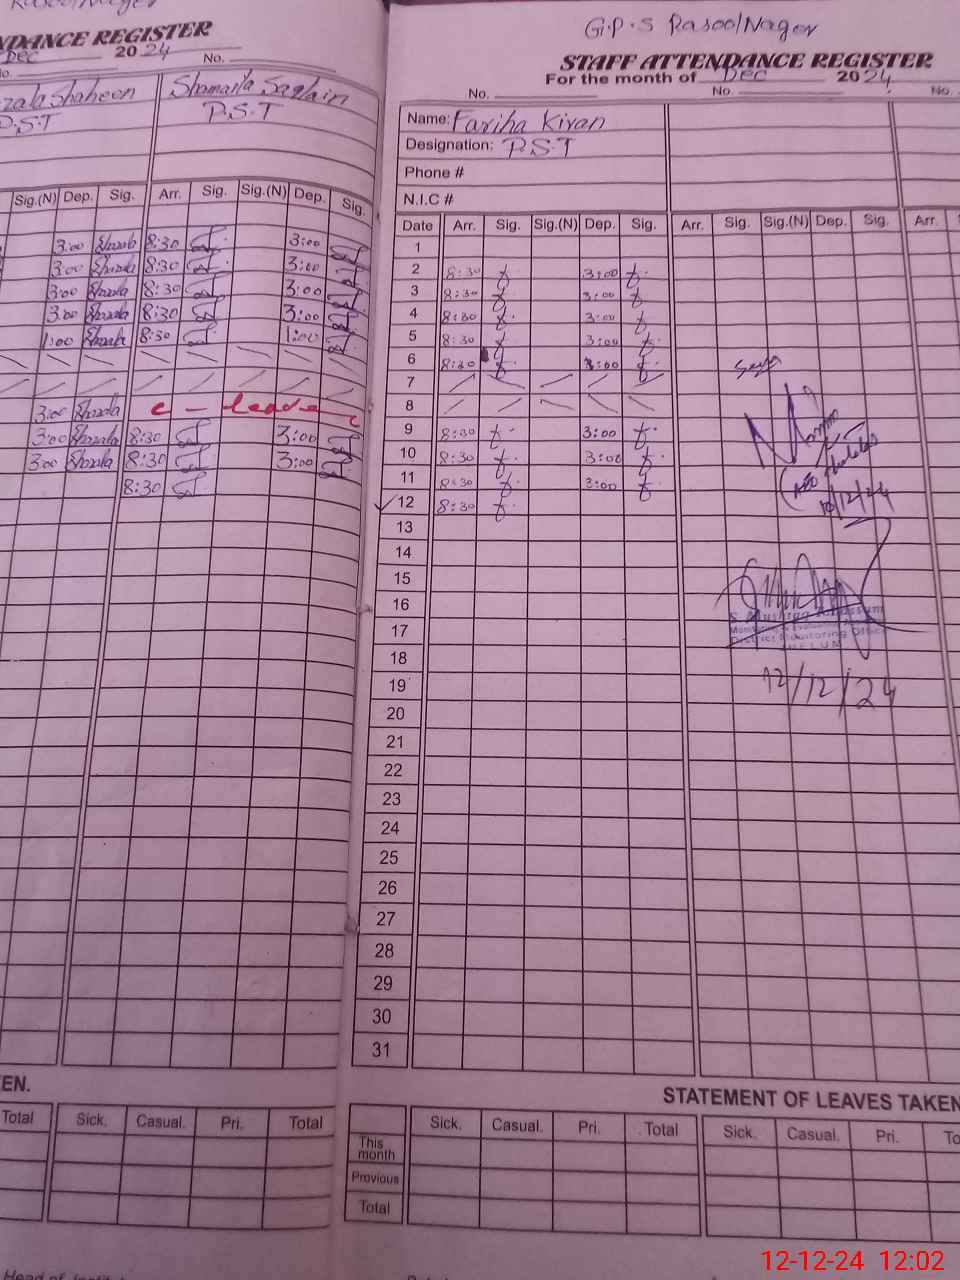 NDANCE REGISTER
Dec 2024
No.
zala Shaheen Shamaila Saqlain
P.S.T P.S.T
Sig.(N) Dep. Sig. Arr. Sig. Sig.(N) Dep. Sig.
3:00 Shazala 8:30 3:00
3:00 Shazala 8:30 3:00
3:00 Shazala 8:30 3:00
3:00 Shazala 8:30 3:00
1:00 Shazala 8:30 1:00
3:00 Shazala C - Leave
3:00 Shazala 8:30 3:00
3:00 Shazala 8:30 3:00
8:30
EN.
Total Sick. Casual. Pri. Total
G.P.S Rasool Nager
STAFF ATTENDANCE REGISTER
For the month of Dec 2024
No. No. No.
Name: Fariha Kiran
Designation: P.S.T
Phone #
N.I.C #
Date Arr. Sig. Sig.(N) Dep. Sig. Arr. Sig. Sig.(N) Dep. Sig. Arr.
1
2 8:30 3:00
3 8:30 3:00
4 8:30 3:00
5 8:30 3:00
6 8:30 3:00
7
8
9 8:30 3:00
10 8:30 3:00
11 8:30 3:00
12 8:30
13
14
15
16
17
18
19
20
21
22
23
24
25
26
27
28
29
30
31
12/24
District Monitoring Office
12/12/24
STATEMENT OF LEAVES TAKEN
Sick. Casual. Pri. Total Sick. Casual. Pri. To
This month
Provious
Total
12-12-24 12:02